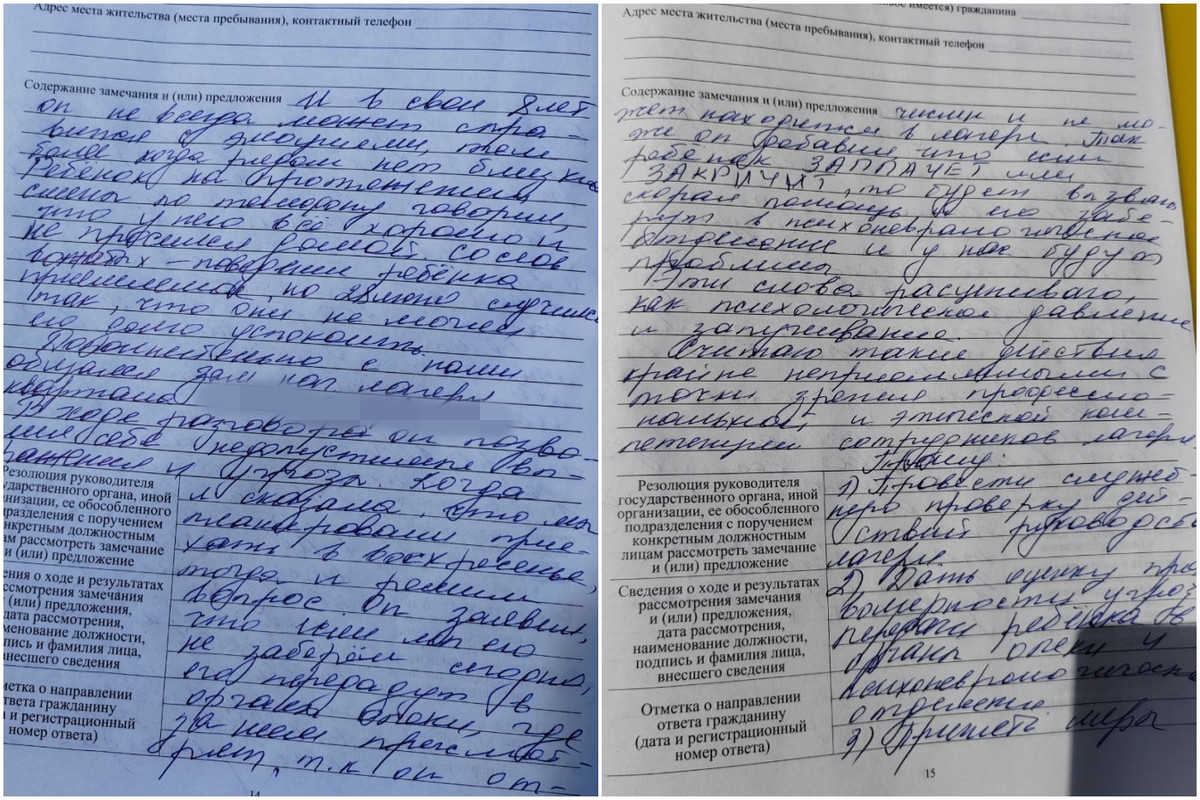 Адрес места жительства (места пребывания), контактный телефон
Содержание замечания и (или) предложения И в свои 8 лет
он не всегда может спра-
виться с эмоциями, тем
более когда рядом нет близких
Ребёнок на протяжении
смены по телефону говорил,
что у него всё хорошо и
не просился домой. Со слов
– поведение ребёнка
приемлемое, но 28 июня случилось
так, что они не могли
его долго успокоить.
Дополнительно с нами
общался зам нач лагеря
В ходе разговора он позво-
лил себе недопустимые вы-
ражения и угрозы. Когда
Резолюция руководителя
государственного органа, иной
организации, ее обособленного
подразделения с поручением
конкретным должностным
лицам рассмотреть замечание
и (или) предложение
я сказала, что мы
планировали прие-
хать в воскресенье,
тогда и решим
вопрос. Он заявил,
что если мы его
не заберём сегодня,
его передадут в
органы опеки, где
за ним присмот-
рят, т.к он от-
ения о ходе и результатах
рассмотрения замечания
(или) предложения,
дата рассмотрения,
именование должности,
пись и фамилия лица,
внесшего сведения
метка о направлении
ответа гражданину
и регистрационный
номер ответа)
14
имеется) гражданина
Адрес места жительства (места пребывания), контактный телефон
Содержание замечания и (или) предложения числен и не мо-
жет находится в лагере. Так
же он добавил что если
ребёнок ЗАПЛАЧЕТ или
ЗАКРИЧИТ, то будет вызвана
скорая помощь и его забе-
рут в психоневрологическое
отделение и у нас будут
проблемы.
Эти слова расцениваю,
как психологическое давление
и запугивание.
Считаю такие действия
крайне неприемлемыми с
точки зрения професcио-
нальной, и этической ком-
петенции сотрудников лагеря.
Прошу:
Резолюция руководителя
государственного органа, иной
организации, ее обособленного
подразделения с поручением
конкретным должностным
лицам рассмотреть замечание
и (или) предложение
1) Провести служеб
ную проверку дей-
ствий руководства
лагеря
2) Дать оценку пра
вомерности угроз
передачи ребёнка в
органы опеки и
психоневрологическое
отделение
3) Принять меры
Сведения о ходе и результатах
рассмотрения замечания
и (или) предложения,
дата рассмотрения,
наименование должности,
подпись и фамилия лица,
внесшего сведения
Отметка о направлении
ответа гражданину
(дата и регистрационный
номер ответа)
15